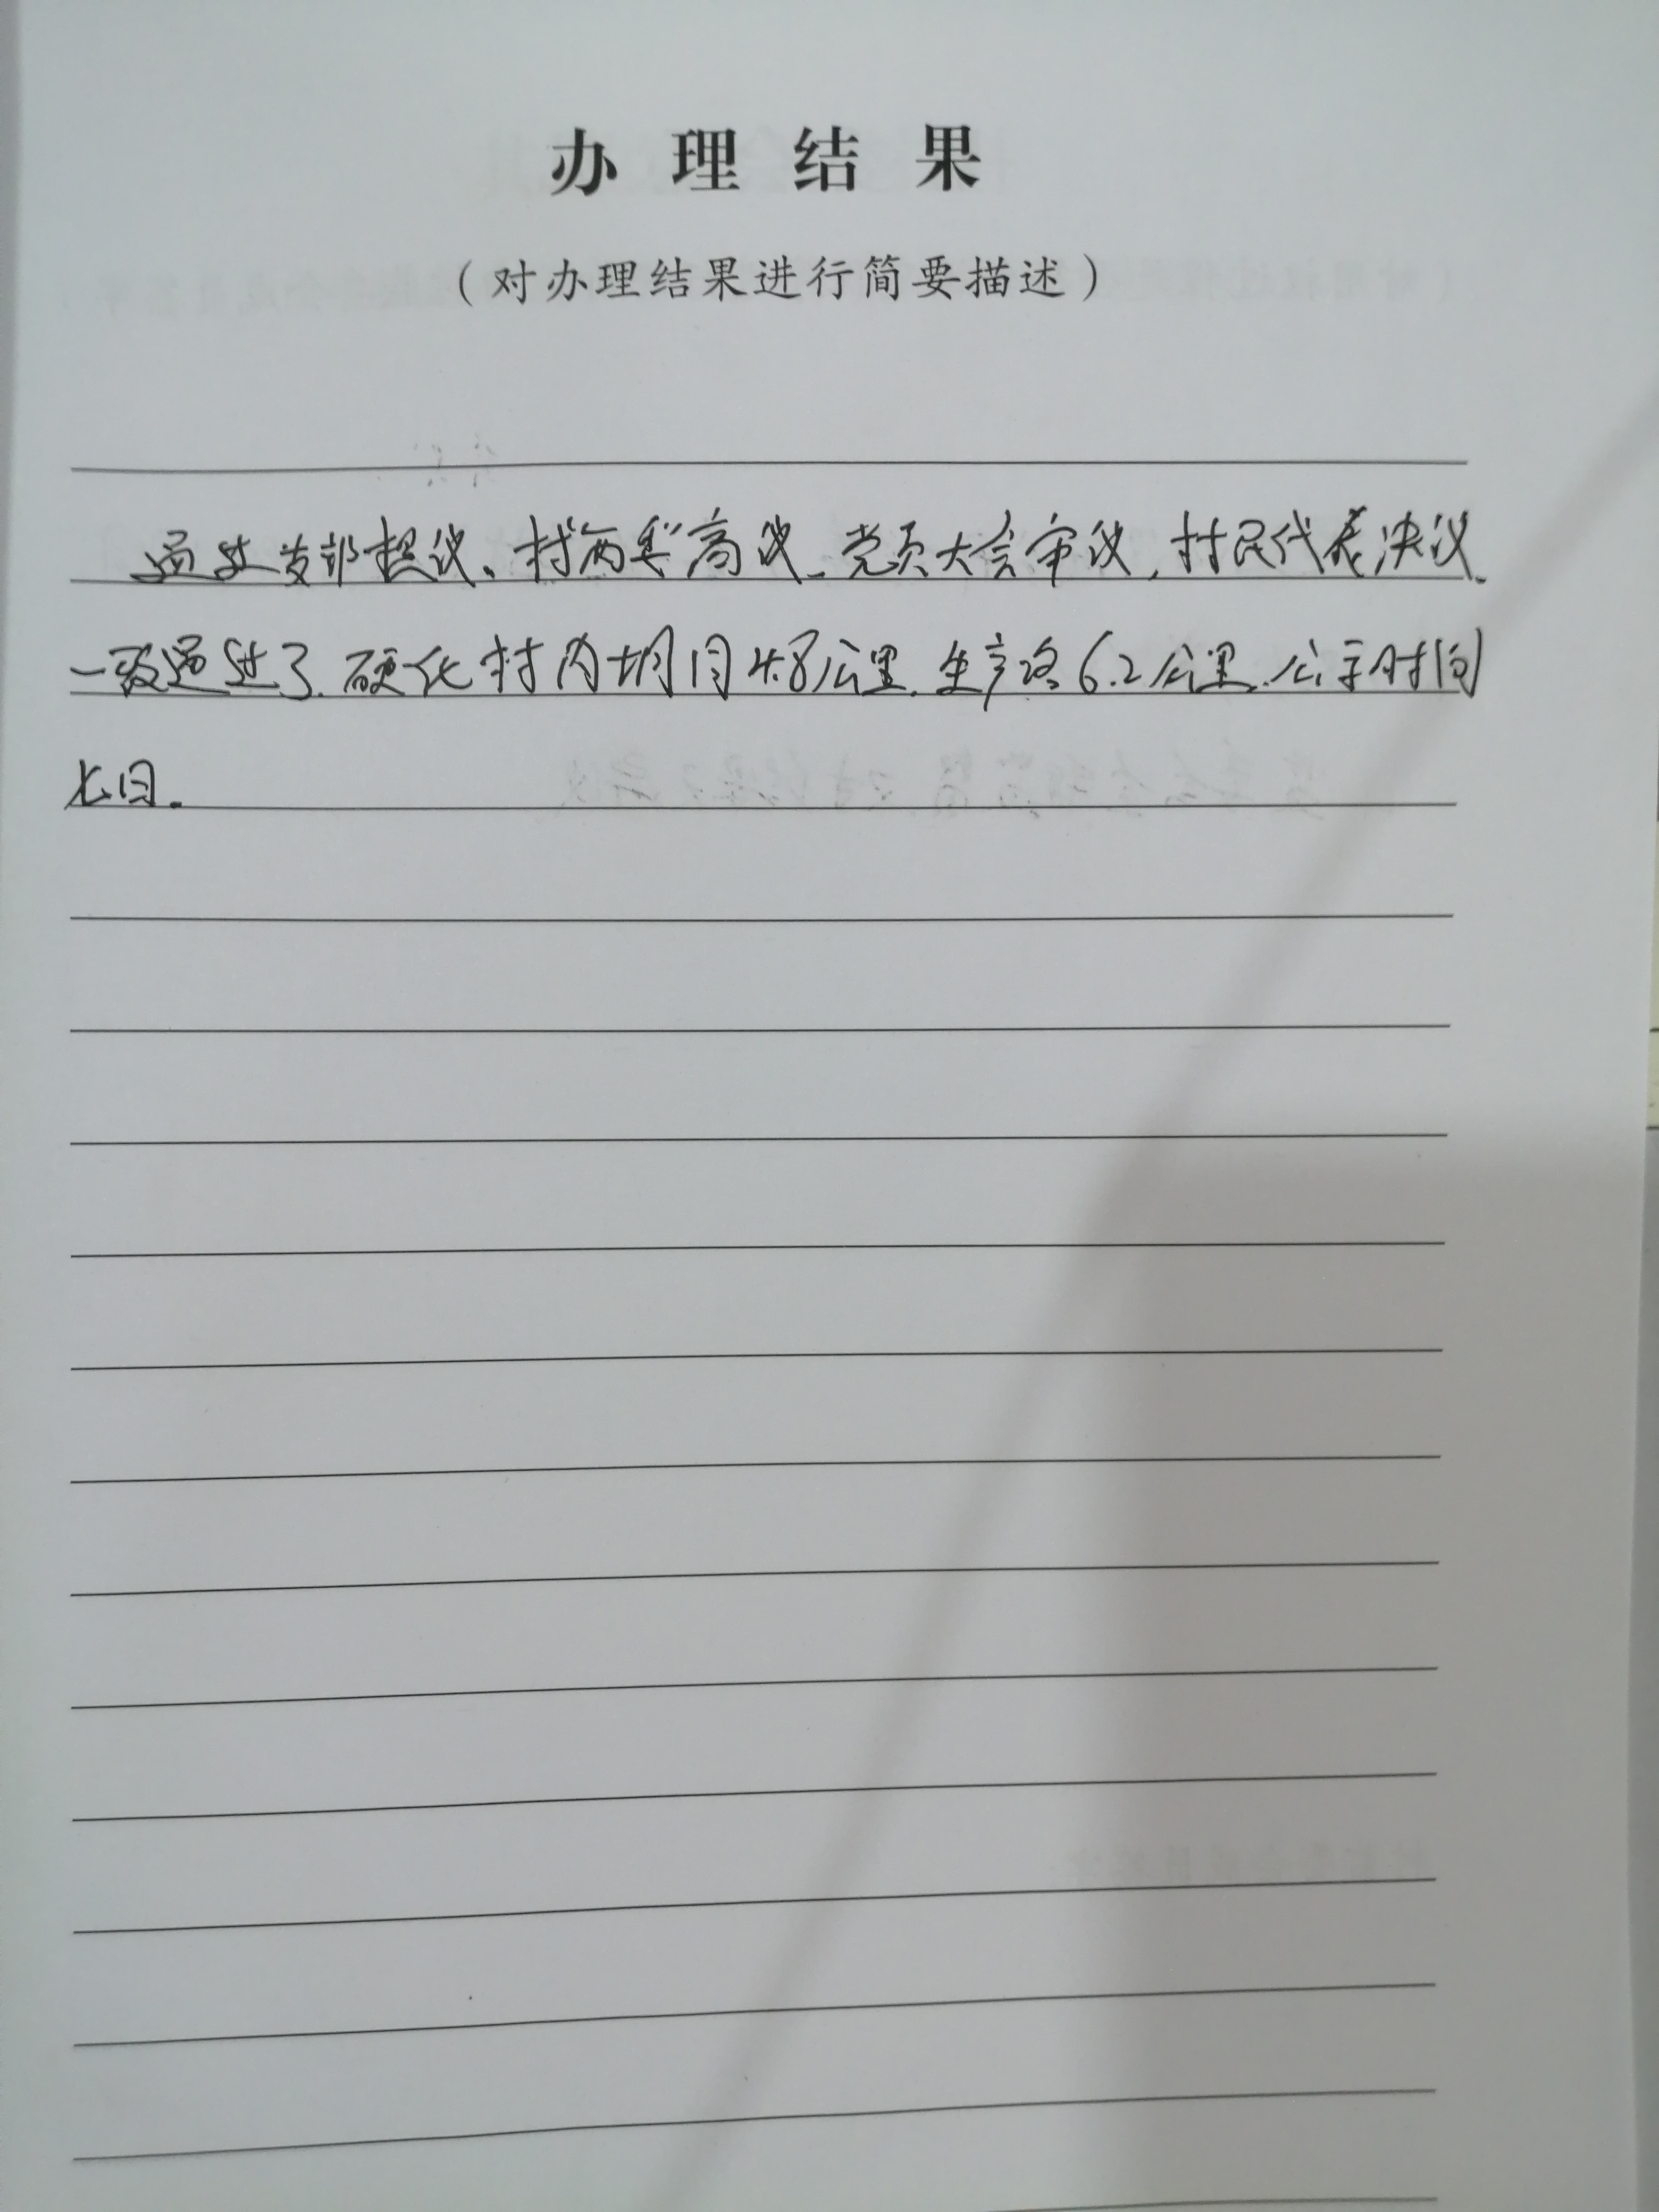 办理结果
（对办理结果进行简要描述）
通过支部提议、村两委商议、党员大会审议，村民代表决议、
一致通过了硬化村内胡同4.8公里.生产路6.2公里.公示时间
七日。